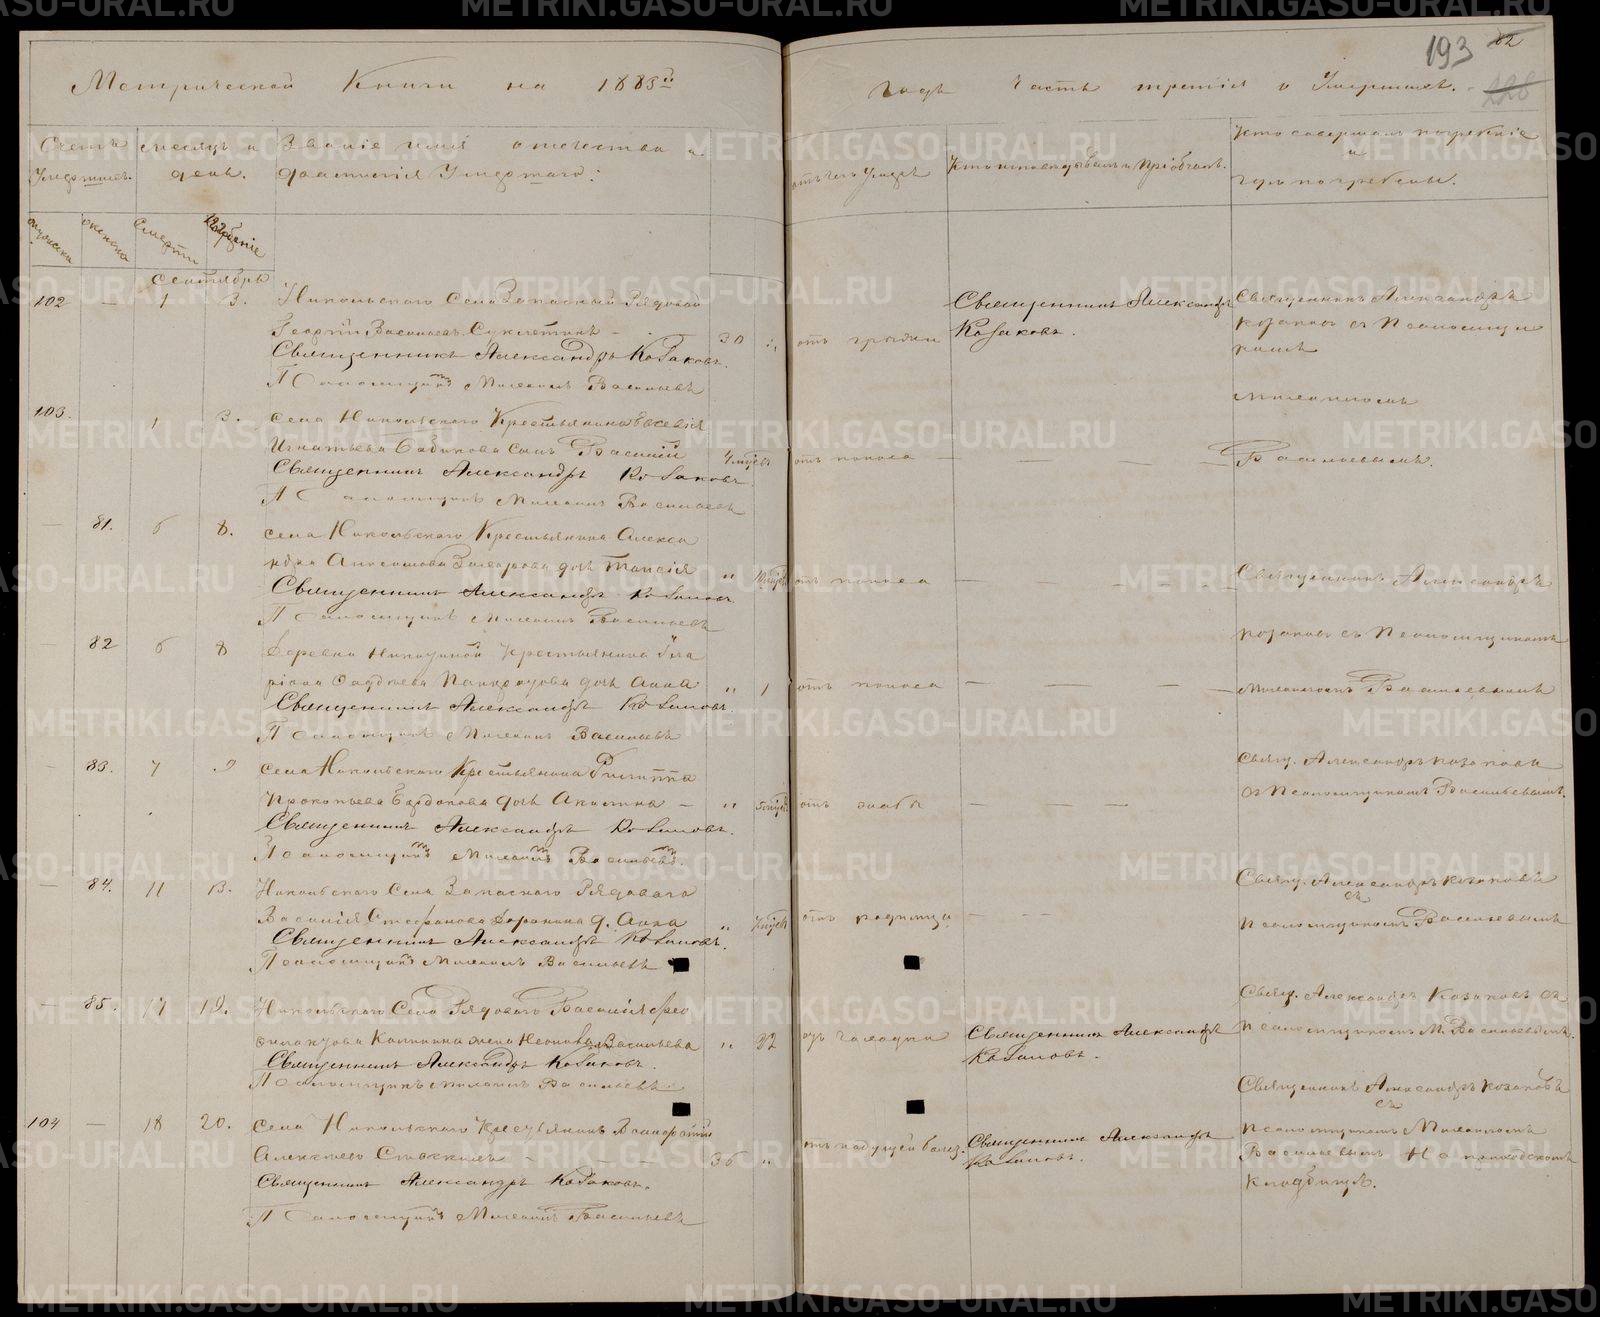 Метрической Книги на 1885й
годъ Часть третія о Умершихъ.
193
82
228
Счетъ Умершихъ.
месяцъ и день.
Званіе имя отчество и фамилія Умершаго:
отъ чего Умеръ
Кто исповѣдывалъ и Пріобщалъ.
Кто совершалъ погребеніе
и
гдѣ погребены.
мужеска
женска
Смерти
Погребеніе
Сентябрь
102 — 1 3. Никольскаго Села Запасный Рядовой
Георгій Васильевъ
Священникъ Александръ Козаковъ.
Псаломщикъ Михаилъ Васильевъ
30
отъ грыжи
Священникъ Александръ
Козаковъ.
Священникъ Александръ
Козаковъ съ Псаломщи
комъ
Михаиломъ
Васильевымъ.
103. 1 3. Села Никольскаго Крестьянина Евсевія
Игнатьева сынъ Василій
Священникъ Александръ Козаковъ.
Псаломщикъ Михаилъ Васильевъ
отъ поноса — — — —
— 81. 6 8. Села Никольскаго Крестьянина Алекса
ндра дочь Таисія
Священникъ Александръ Козаковъ.
Псаломщикъ Михаилъ Васильевъ
отъ поноса — — — —
Священникъ Александръ
Козаковъ съ Псаломщикомъ
Михаиломъ Васильевымъ
— 82 6 8 Деревни Крестьянина Ила
ріона дочь Анна
Священникъ Александръ Козаковъ.
Псаломщикъ Михаилъ Васильевъ
" 1 отъ поноса — — — —
— 83. 7 9 Села Никольскаго Крестьянина Филиппа
Прокопьева дочь Акилина —
Священникъ Александръ Козаковъ.
Псаломщикъ Михаилъ Васильевъ.
отъ жабы — — —
Свящ. Александръ Козаковъ
съ Псаломщикомъ Васильевымъ.
— 84. 11 13. Никольскаго Села Запаснаго Рядоваго
Василія Стефанова д. Анна
Священникъ Александръ Козаковъ.
Псаломщикъ Михаилъ Васильевъ
отъ родимца — — —
Свящ. Александръ Козаковъ
съ
Псаломщикомъ Васильевымъ
— 85. 17 19. Никольскаго Села Рядоваго Василія Фео
Калинина жена Васильева
Священникъ Александръ Козаковъ.
Псаломщикъ Михаилъ Васильевъ
" 22
Священникъ Александръ
Козаковъ.
Свящ. Александръ Козаковъ съ
Псаломщикомъ М. Васильевымъ.
104 — 18 20. Села Никольскаго Крестьянинъ
Алексѣевъ
Священникъ Александръ Козаковъ.
Псаломщикъ Михаилъ Васильевъ
36 "
отъ падучей болез.
Священникъ Александръ
Козаковъ.
Священникъ Александръ Козаковъ
съ
Псаломщикомъ Михаиломъ
Васильевымъ На приходскомъ
Кладбищѣ.
METRIKI.GASO-URAL.RU